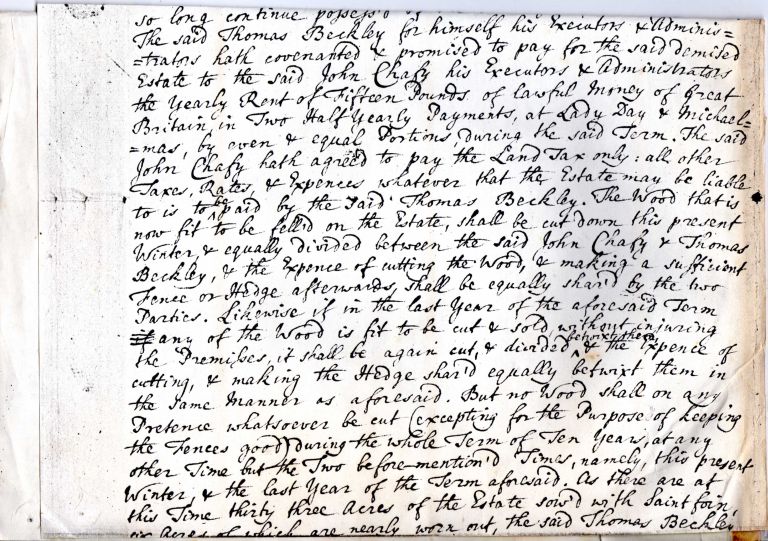 so long continue possess'd
The said Thomas Beckley for himself his Executors & Adminis=
=trators hath covenanted & promised to pay for the said demised
Estate to the said John Chafy his Executors & Administrators
the Yearly Rent of Fifteen Pounds of lawful Money of Great
Britain, in Two Half Yearly Payments, at Lady Day & Michael=
=mas, by even & equal Portions, during the said Term. The said
John Chafy hath agreed to pay the Land Tax only: all other
Taxes, Rates, & Expences whatever that the Estate may be liable
to is to be paid by the said Thomas Beckley. The Wood that is
now fit to be fell'd on the Estate, shall be cut down this present
Winter, & equally divided between the said John Chafy & Thomas
Beckley, & the Expence of cutting the Wood, & making a sufficient
Fence or Hedge afterwards, shall be equally shar'd by the two
Parties. Likewise if in the last Year of the aforesaid Term
if any of the Wood is fit to be cut & sold without injuring
the Premises, it shall be again cut, & divided betwixt them, & the Expence of
cutting, & making the Hedge shar'd equally betwixt them in
the same Manner as aforesaid. But no Wood shall on any
Pretence whatsoever be cut (excepting for the Purpose of keeping
the Fences good) during the whole Term of Ten Years, at any
other Time but the Two before-mention'd Times, namely, this present
Winter, & the last Year of the Term aforesaid. As there are at
this Time thirty three Acres of the Estate sow'd with Saint foin,
six Acres of which are nearly worn out, the said Thomas Beckley